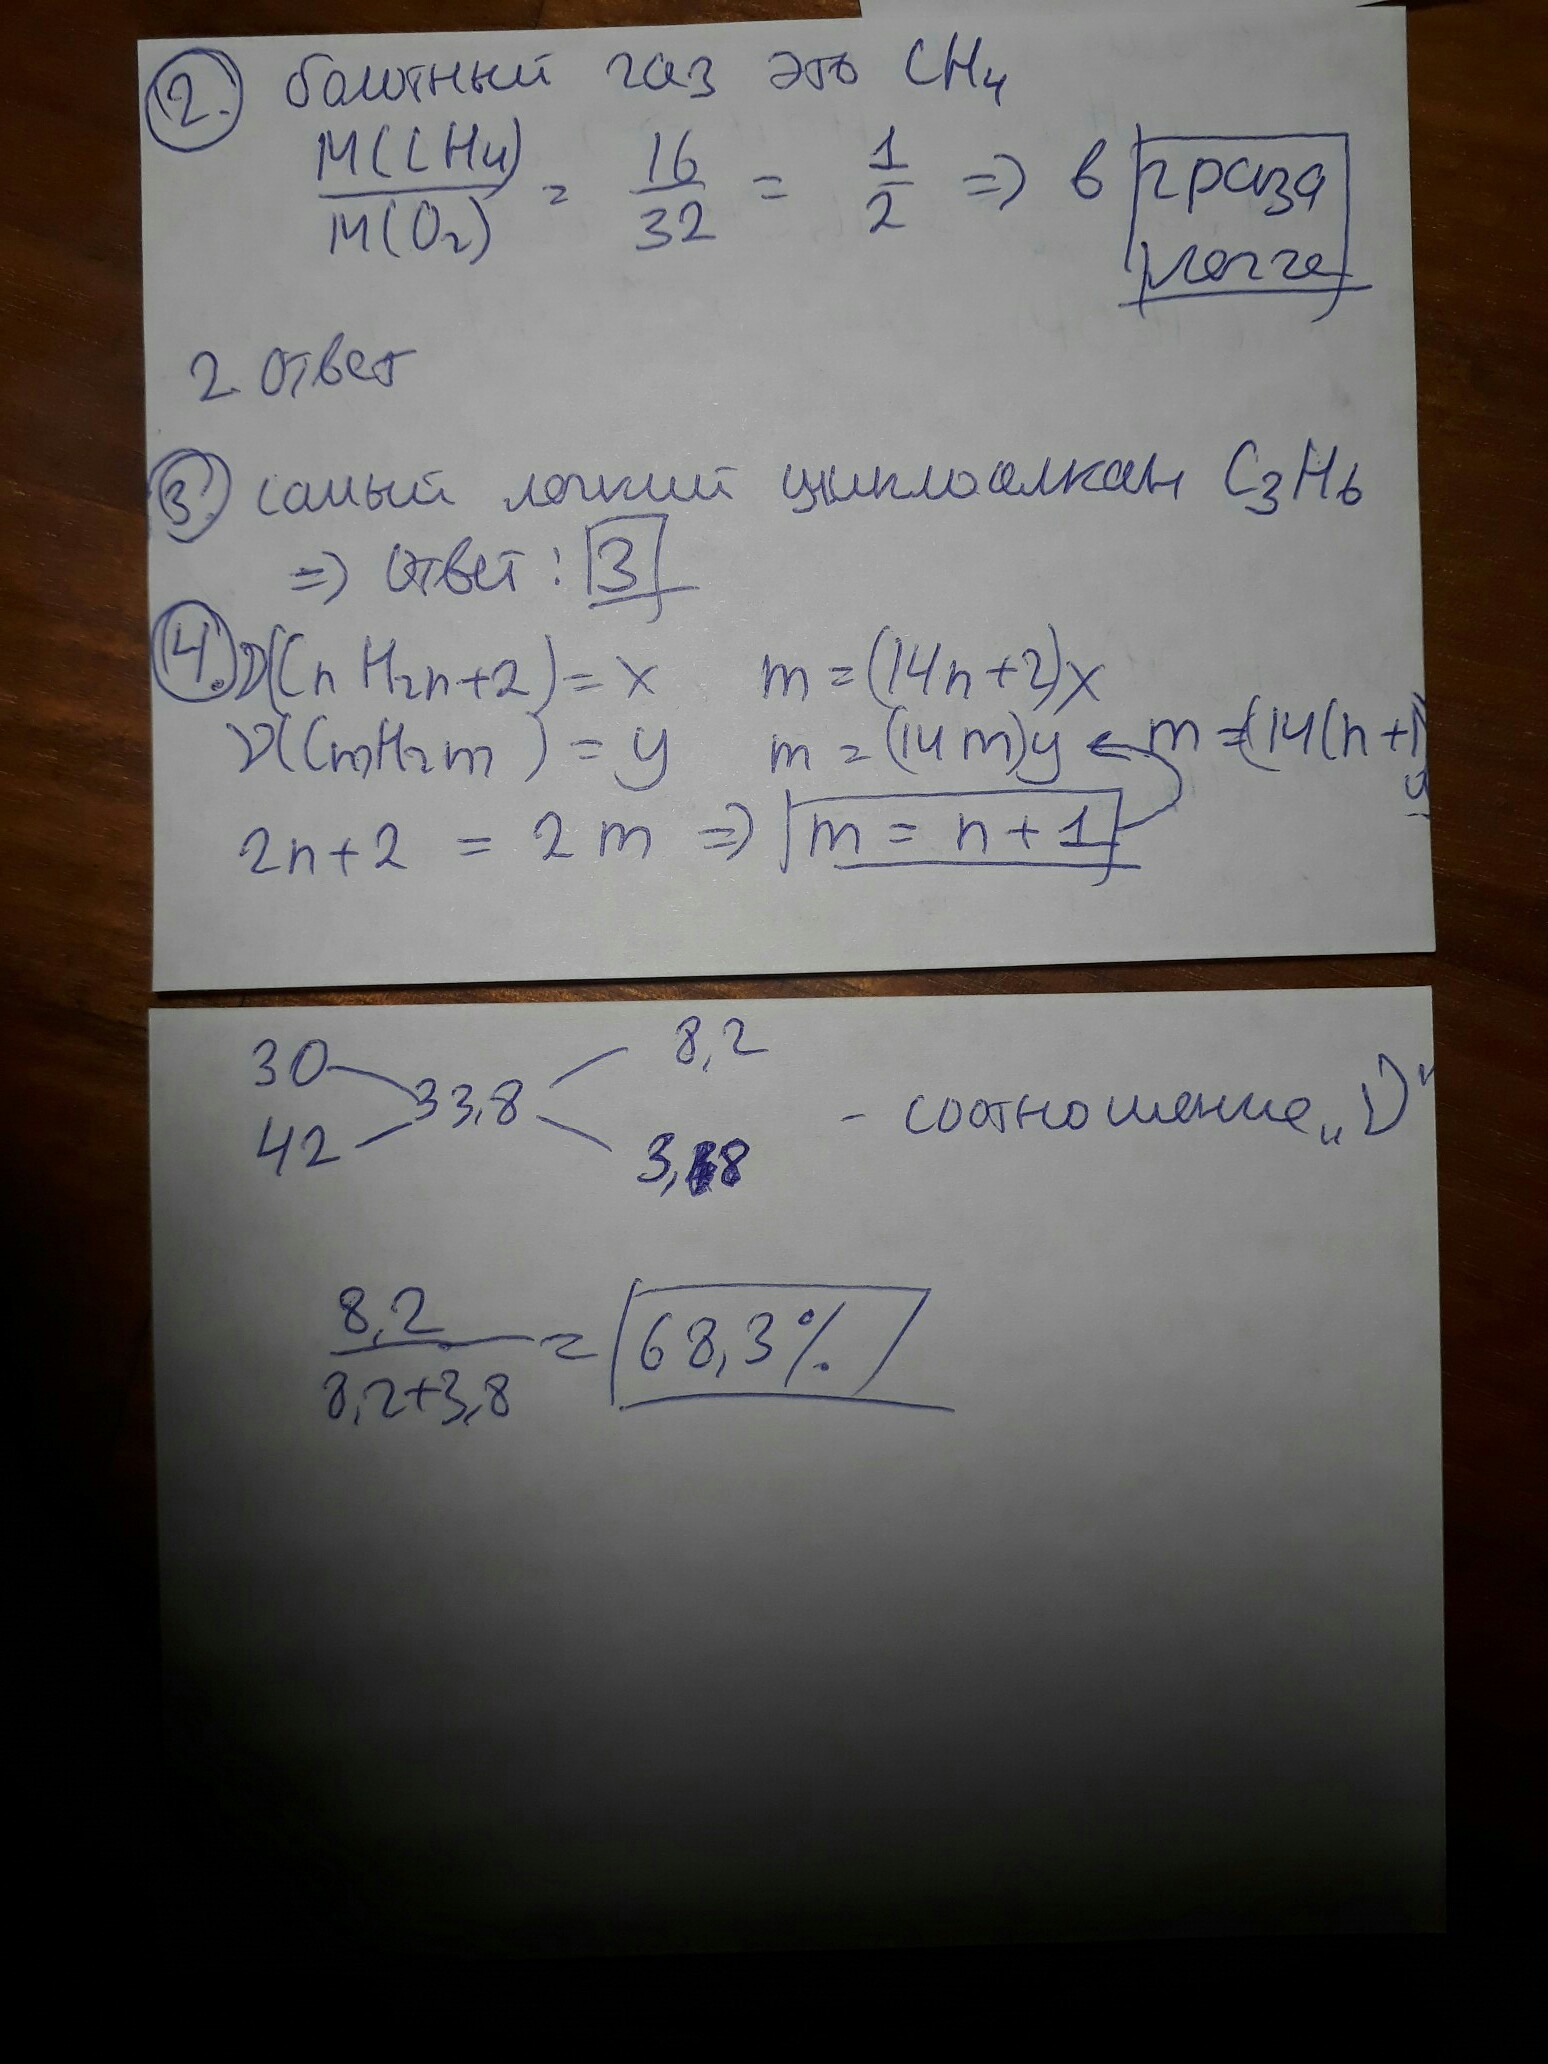 2. болотный газ это CH4
M(CH4)/M(O2) = 16/32 = 1/2 => в 2 раза
легче
2 Ответ
3. самый легкий циклоалкан C3H6
=> ответ: 3
4. ν(CnH2n+2) = x m = (14n+2)x
ν(CmH2m) = y m = (14m)y ← m = (14(n+1)
y
2n+2 = 2m => m = n+1
30 8,2
33,8 - соотношение "ν"
42 3,8
8,2/(8,2+3,8) = 68,3%